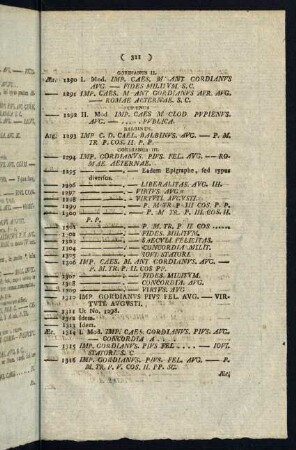 ( 311 )
GORDIANUS II.
Ær. 1290 I. Mod. IMP. CAES. M ANT GORDIANVS
AVG — FIDES MILITVM. S. C.
— 1291 IMP. CAES. M ANT GORDIANVS AFR. AVG.
— ROMAE AETERNAE. S. C.
— 1292 II. Mod. IMP. CAES M CLOD. PVPIENVS.
AVG. — . . . . PVBLICA.
BALBINUS.
Arg. 1293 IMP C. D. CAEL. BALBINVS. AVG. — P. M.
TR. P. COS. II. P. P.
GORDIANUS III.
— 1294 IMP. GORDIANVS. PIVS. FEL. AVG. — RO-
MAE AETERNAE.
— 1295 — — — Eadem Epigraphe, sed typus
diversus.
— 1296 — — — LIBERALITAS. AVG. III.
— 1297 — — — VIRTVS. AVG.
— 1298 — — — VIRTVTI AVGVSTI.
— 1299 — — — P. M TR. P III COS P. P.
— 1300 — — — P. M TR. P. III. COS. II.
P. P.
— 1301 — — — P. M. TR. P. II COS . . . .
— 1302 — — — FIDES. MILITVM.
— 1303 — — — SAECVLI FELICITAS.
— 1304 — — — CONCORDIA MILIT.
— 1305 — — — IOVI. STATORI.
— 1306 IMP. CAES. M. ANT GORDIANVS. AVG. —
P. M. TR. P. II COS PP.
— 1307 — — — FIDES. MILITVM.
— 1308 — — — CONCORDIA AVG.
— 1309 — — — VIRTVS. AVG
— 1310 IMP. GORDIANVS PIVS FEL. AVG. — VIR-
TVTE AVGVSTI,
— 1311 Ut No. 1298.
— 1312 Idem.
— 1313 Idem.
Ær. 1314 I. Mod. IMP. CAES. GORDIANVS. PIVS. AVG.
— CONCORDIA A . . .
— 1315 IMP. GORDIANVS. PIVS FEL . . . . — IOVI.
STATORI. S. C
— 1316 IMP. GORDIANVS. PIVS. FEL. AVG. — P.
M. TR. P. V. COS. II. PP. SC.